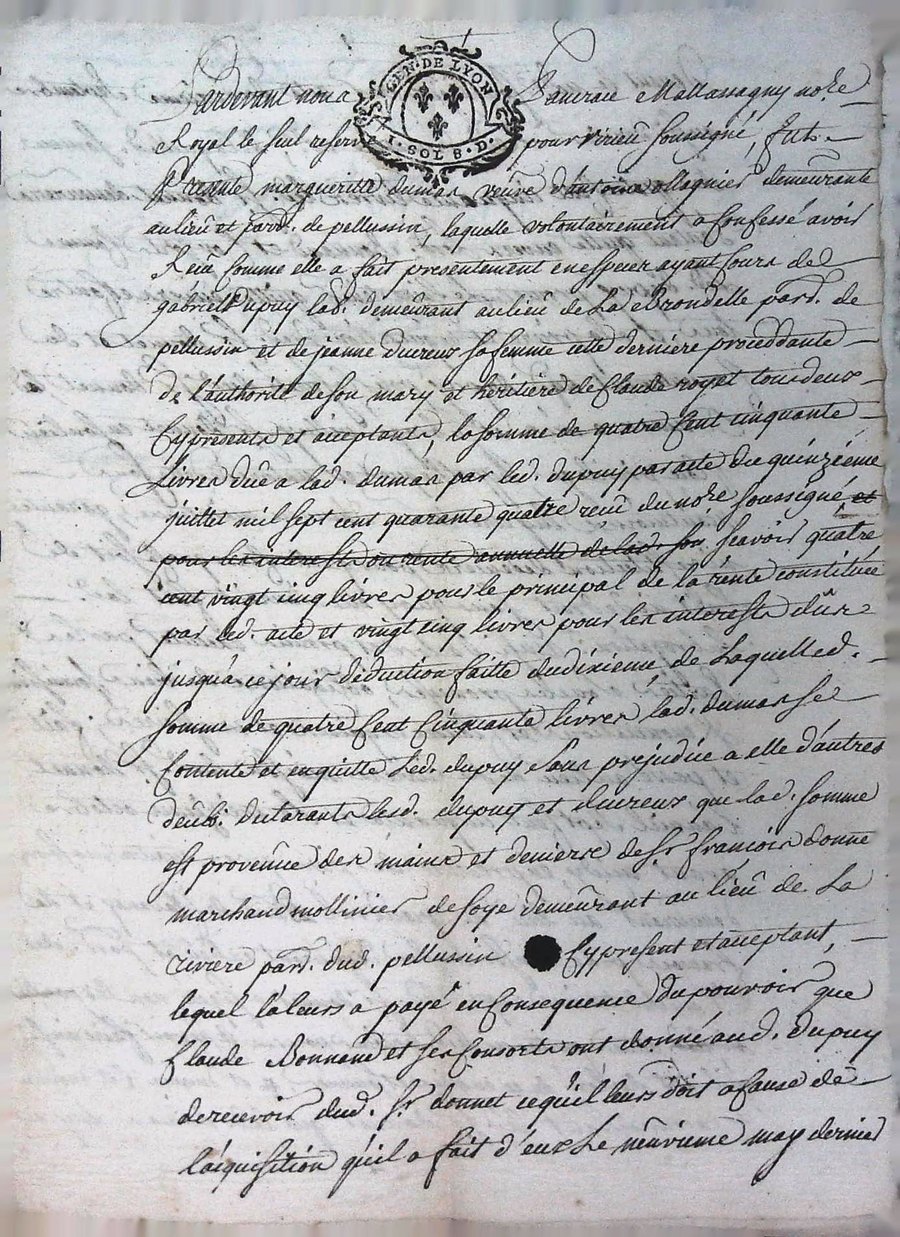 GEN. DE LYON
1. SOL 8. D.
Pardevant nous Bancraie Mallassagny no.re
Royal le seul reservé pour virieu soussigné, fut
presente margueritte dumas veuve d'antoine ollagnier demeurante
au lieu et parr. de pellussin, laquelle volontairement a confessé avoir
Receu comme elle a fait presentement en especes ayant cours de
gabriel dupuy lab. demeurant au lieu de La Brondelle parr. de
pellussin et de jeanne ducreux sa femme cette derniere proceddante
de l'authorité de son mary et héritiere de Claude royet tous deux
cy presents et acceptants, la somme de quatre cent cinquante
Livres düe a lad. dumas par led. dupuy par acte du quinzéeme
juillet mil sept cent quarante quatre receu du no.re soussigné et
pour les interest ou rente annuelle de lad. son scavoir quatre
cent vingt cinq livres pour le principal de la rente constituée
par led. acte et vingt cinq livres pour les interests dûs
jusqu'a ce jour déduction faitte du dixieme de Laquelle d.
somme de quatre Cent Cinquante livres lad. dumas se
Contente et en quitte Led. dupuy sans prejudice a elle d'autres
deubs. declarants lesd. dupuy et ducreux que lad. somme
est provenüe des mains et deniers de Sr. francois donné
marchand mollinier de soye demeurant au lieu de La
riviere parr. dud. pellussin cy present et acceptant,
lequel la leurs a payé en Consequence du pouvoir que
Claude Bonnand et ses Consorts ont donné aud. dupuy
de recevoir dud. Sr. donnet ce qu'il leurs doit a Cause de
l'acquisition qu'il a fait d'eux Le neuvieme may dernier